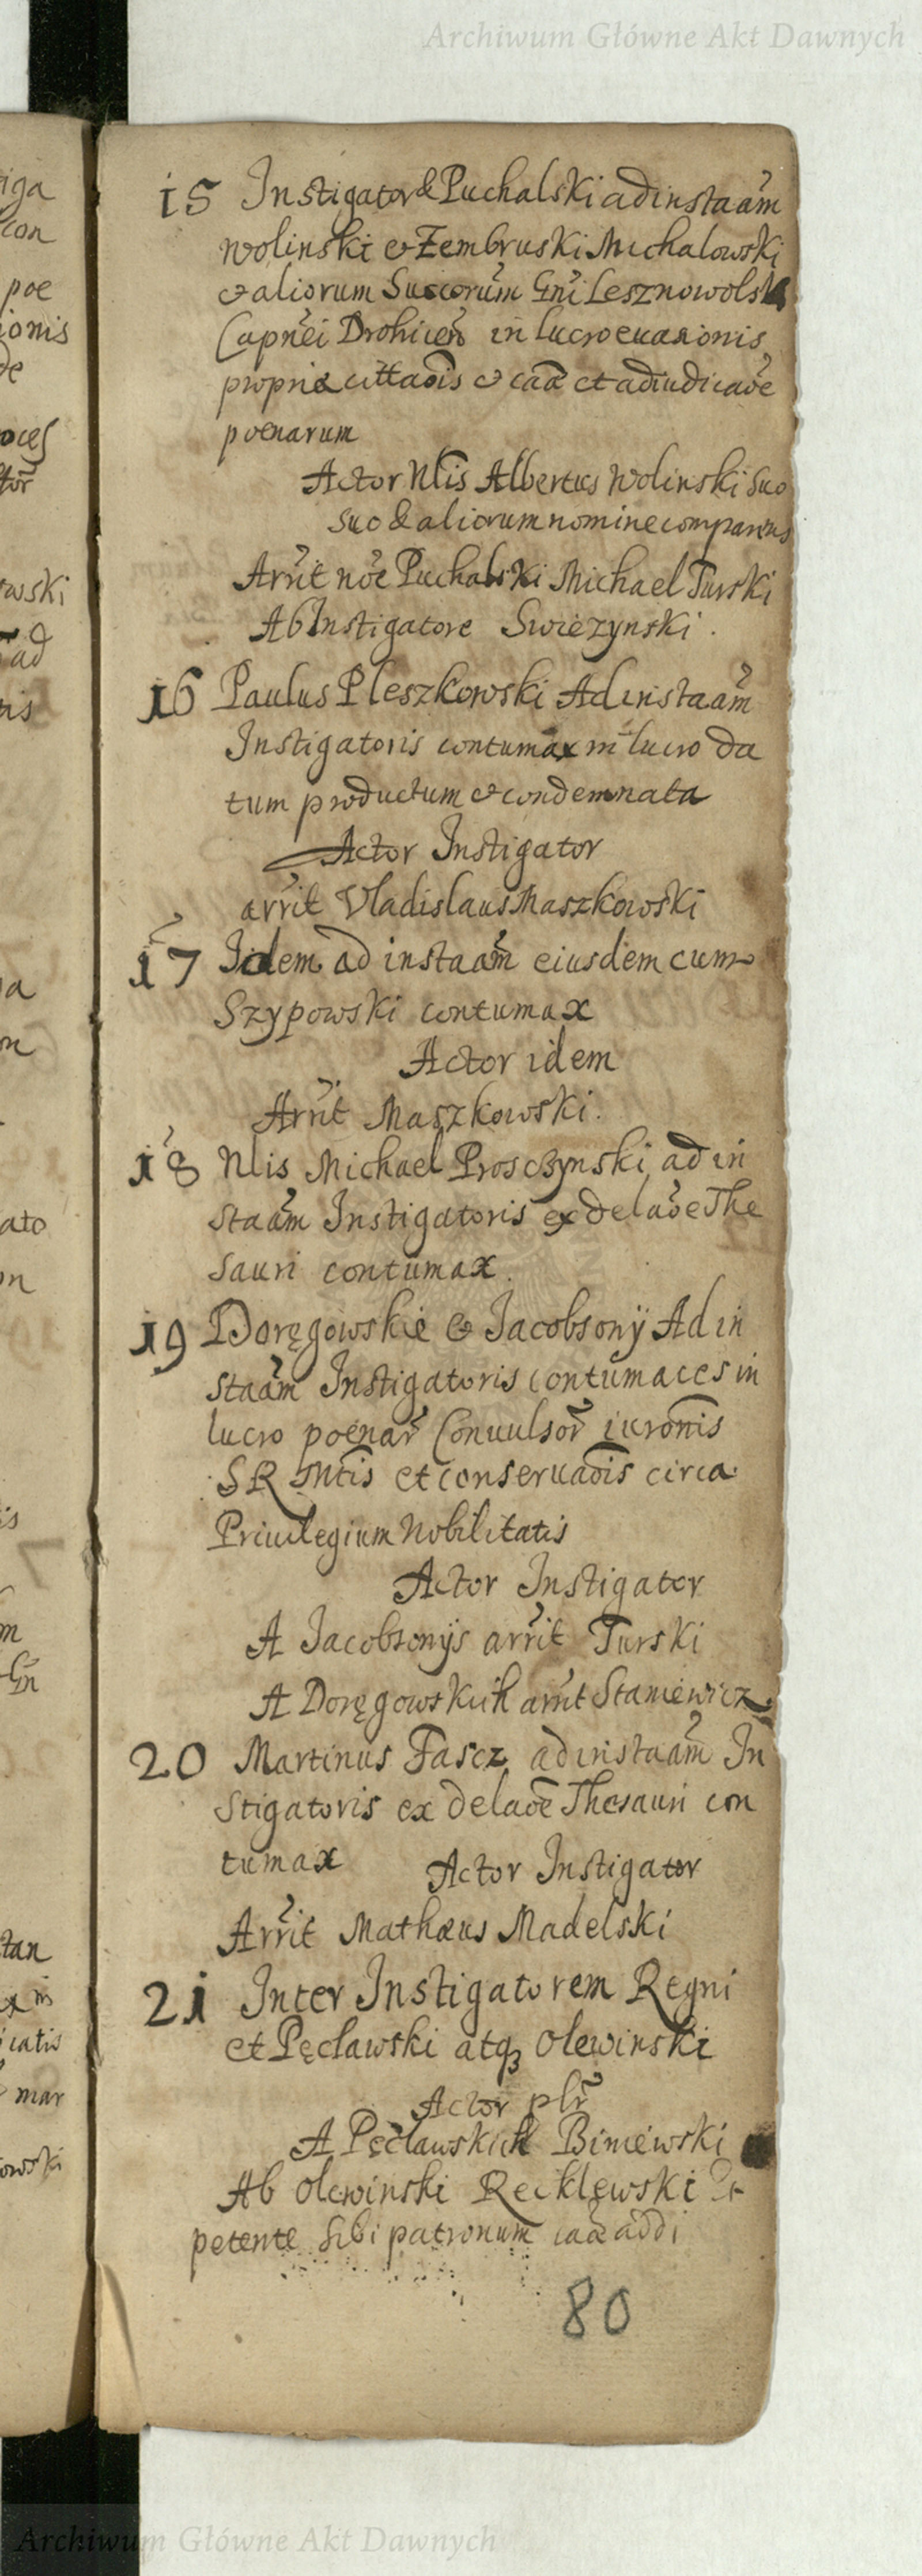 Archiwum Główne Akt Dawnych
15 Instigator & Puchalski ad instaam
Wolinski & Zembruski Michalowski
& aliorum Succorum Gni Lesznowolsk
Capnei Drohicen in lucro euasionis
propria cittaois & caa et adiudicaoe
poenarum
Actor Nlis Albertus Wolinski suo
suo & aliorum nomine comparens
Arrit noe Puchalski Michael Turski
Ab Instigatore Swiezynski.
16 Paulus Pleszkowski Ad instaam
Instigatoris contumax in lucro da
tum productum & condemnata
Actor Instigator
arrit Vladislaus Maszkowski
17 Idem ad instaam eiusdem cum
Szypowski contumax
Actor idem
Arrit Maszkowski.
18 Nlis Michael Prosczynski ad in
staam Instigatoris ex delaoe The
sauri contumax.
19 Doręgowskie & Jacobsony Ad in
staam Instigatoris contumaces in
lucro poenar Conuulsor
SR Mtis et conseruaois circa
Priuilegium Nobilitatis
Actor Instigator
A Jacobsonys arrit Turski
A Doręgowskich arrit Staniewicz.
20 Martinus Fascz ad instaam In
stigatoris ex delaoe Thesauri con
tumax Actor Instigator
Arrit Mathæus Madelski
21 Inter Instigatorem Regni
et Pęcławski atq3 Olewinski
Actor plr
A Pęcławskich Biniewski
Ab Olewinski Recklewski
petente sibi patronum caa addi
80
iga
con
poe
ionis
de
oces
tor
owski
ad
ris
a
on
ato
on
is
m
Gn
tan
ex in
icatis
mar
owski
Archiwum Główne Akt Dawnych